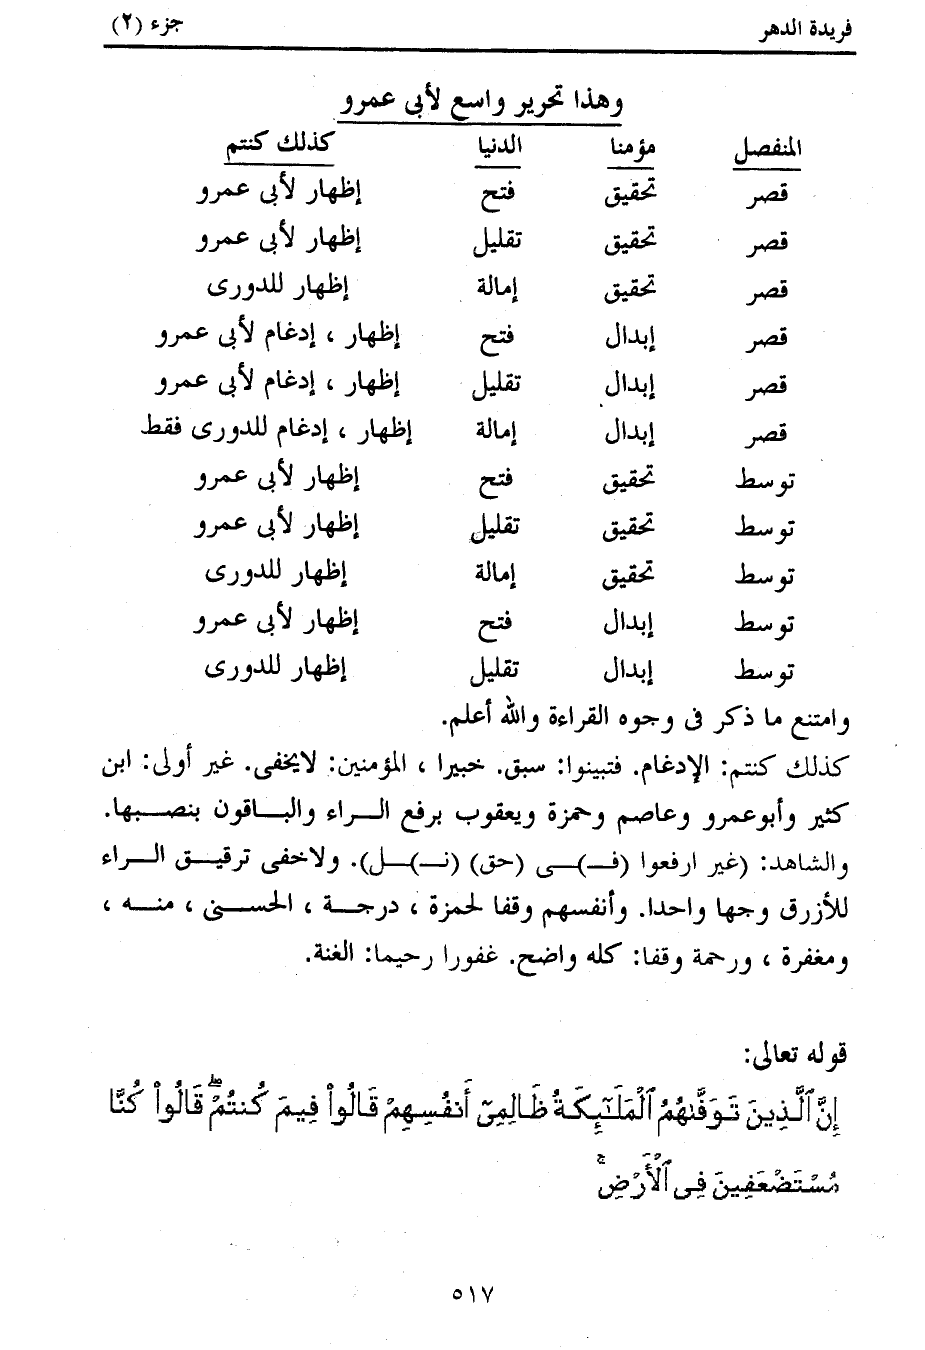 فريدة الدهر جزء (٢)
وهذا تحرير واسع لأبى عمرو
المنفصل مؤمنا الدنيا كذلك كنتم
قصر تحقيق فتح إظهار لأبى عمرو
قصر تحقيق تقليل إظهار لأبى عمرو
قصر تحقيق إمالة إظهار للدورى
قصر إبدال فتح إظهار ، إدغام لأبى عمرو
قصر إبدال تقليل إظهار ، إدغام لأبى عمرو
قصر إبدال إمالة إظهار ، إدغام للدورى فقط
توسط تحقيق فتح إظهار لأبى عمرو
توسط تحقيق تقليل إظهار لأبى عمرو
توسط تحقيق إمالة إظهار للدورى
توسط إبدال فتح إظهار لأبى عمرو
توسط إبدال تقليل إظهار للدورى
وامتنع ما ذكر فى وجوه القراءة والله أعلم.
كذلك كنتم: الإدغام. فتبينوا: سبق. خبيرا ، المؤمنين: لايخفى. غير أولى: ابن
كثير وأبوعمرو وعاصم وحمزة ويعقوب برفع الـــراء والبــاقون بنصــبها.
والشاهد: (غير ارفعوا (فـــ)ــى (حق) (نــ)ــل). ولاخفى ترقيــق الــراء
للأزرق وجها واحدا. وأنفسهم وقفا لحمزة ، درجــة ، الحســنى ، منــه ،
ومغفرة ، ورحمة وقفا: كله واضح. غفورا رحيما: الغنة.
قوله تعالى:
إِنَّ ٱلَّذِينَ تَوَفَّىٰهُمُ ٱلْمَلَٰٓئِكَةُ ظَالِمِىٓ أَنفُسِهِمْ قَالُوا۟ فِيمَ كُنتُمْ ۖ قَالُوا۟ كُنَّا
مُسْتَضْعَفِينَ فِى ٱلْأَرْضِ ۚ
٥١٧